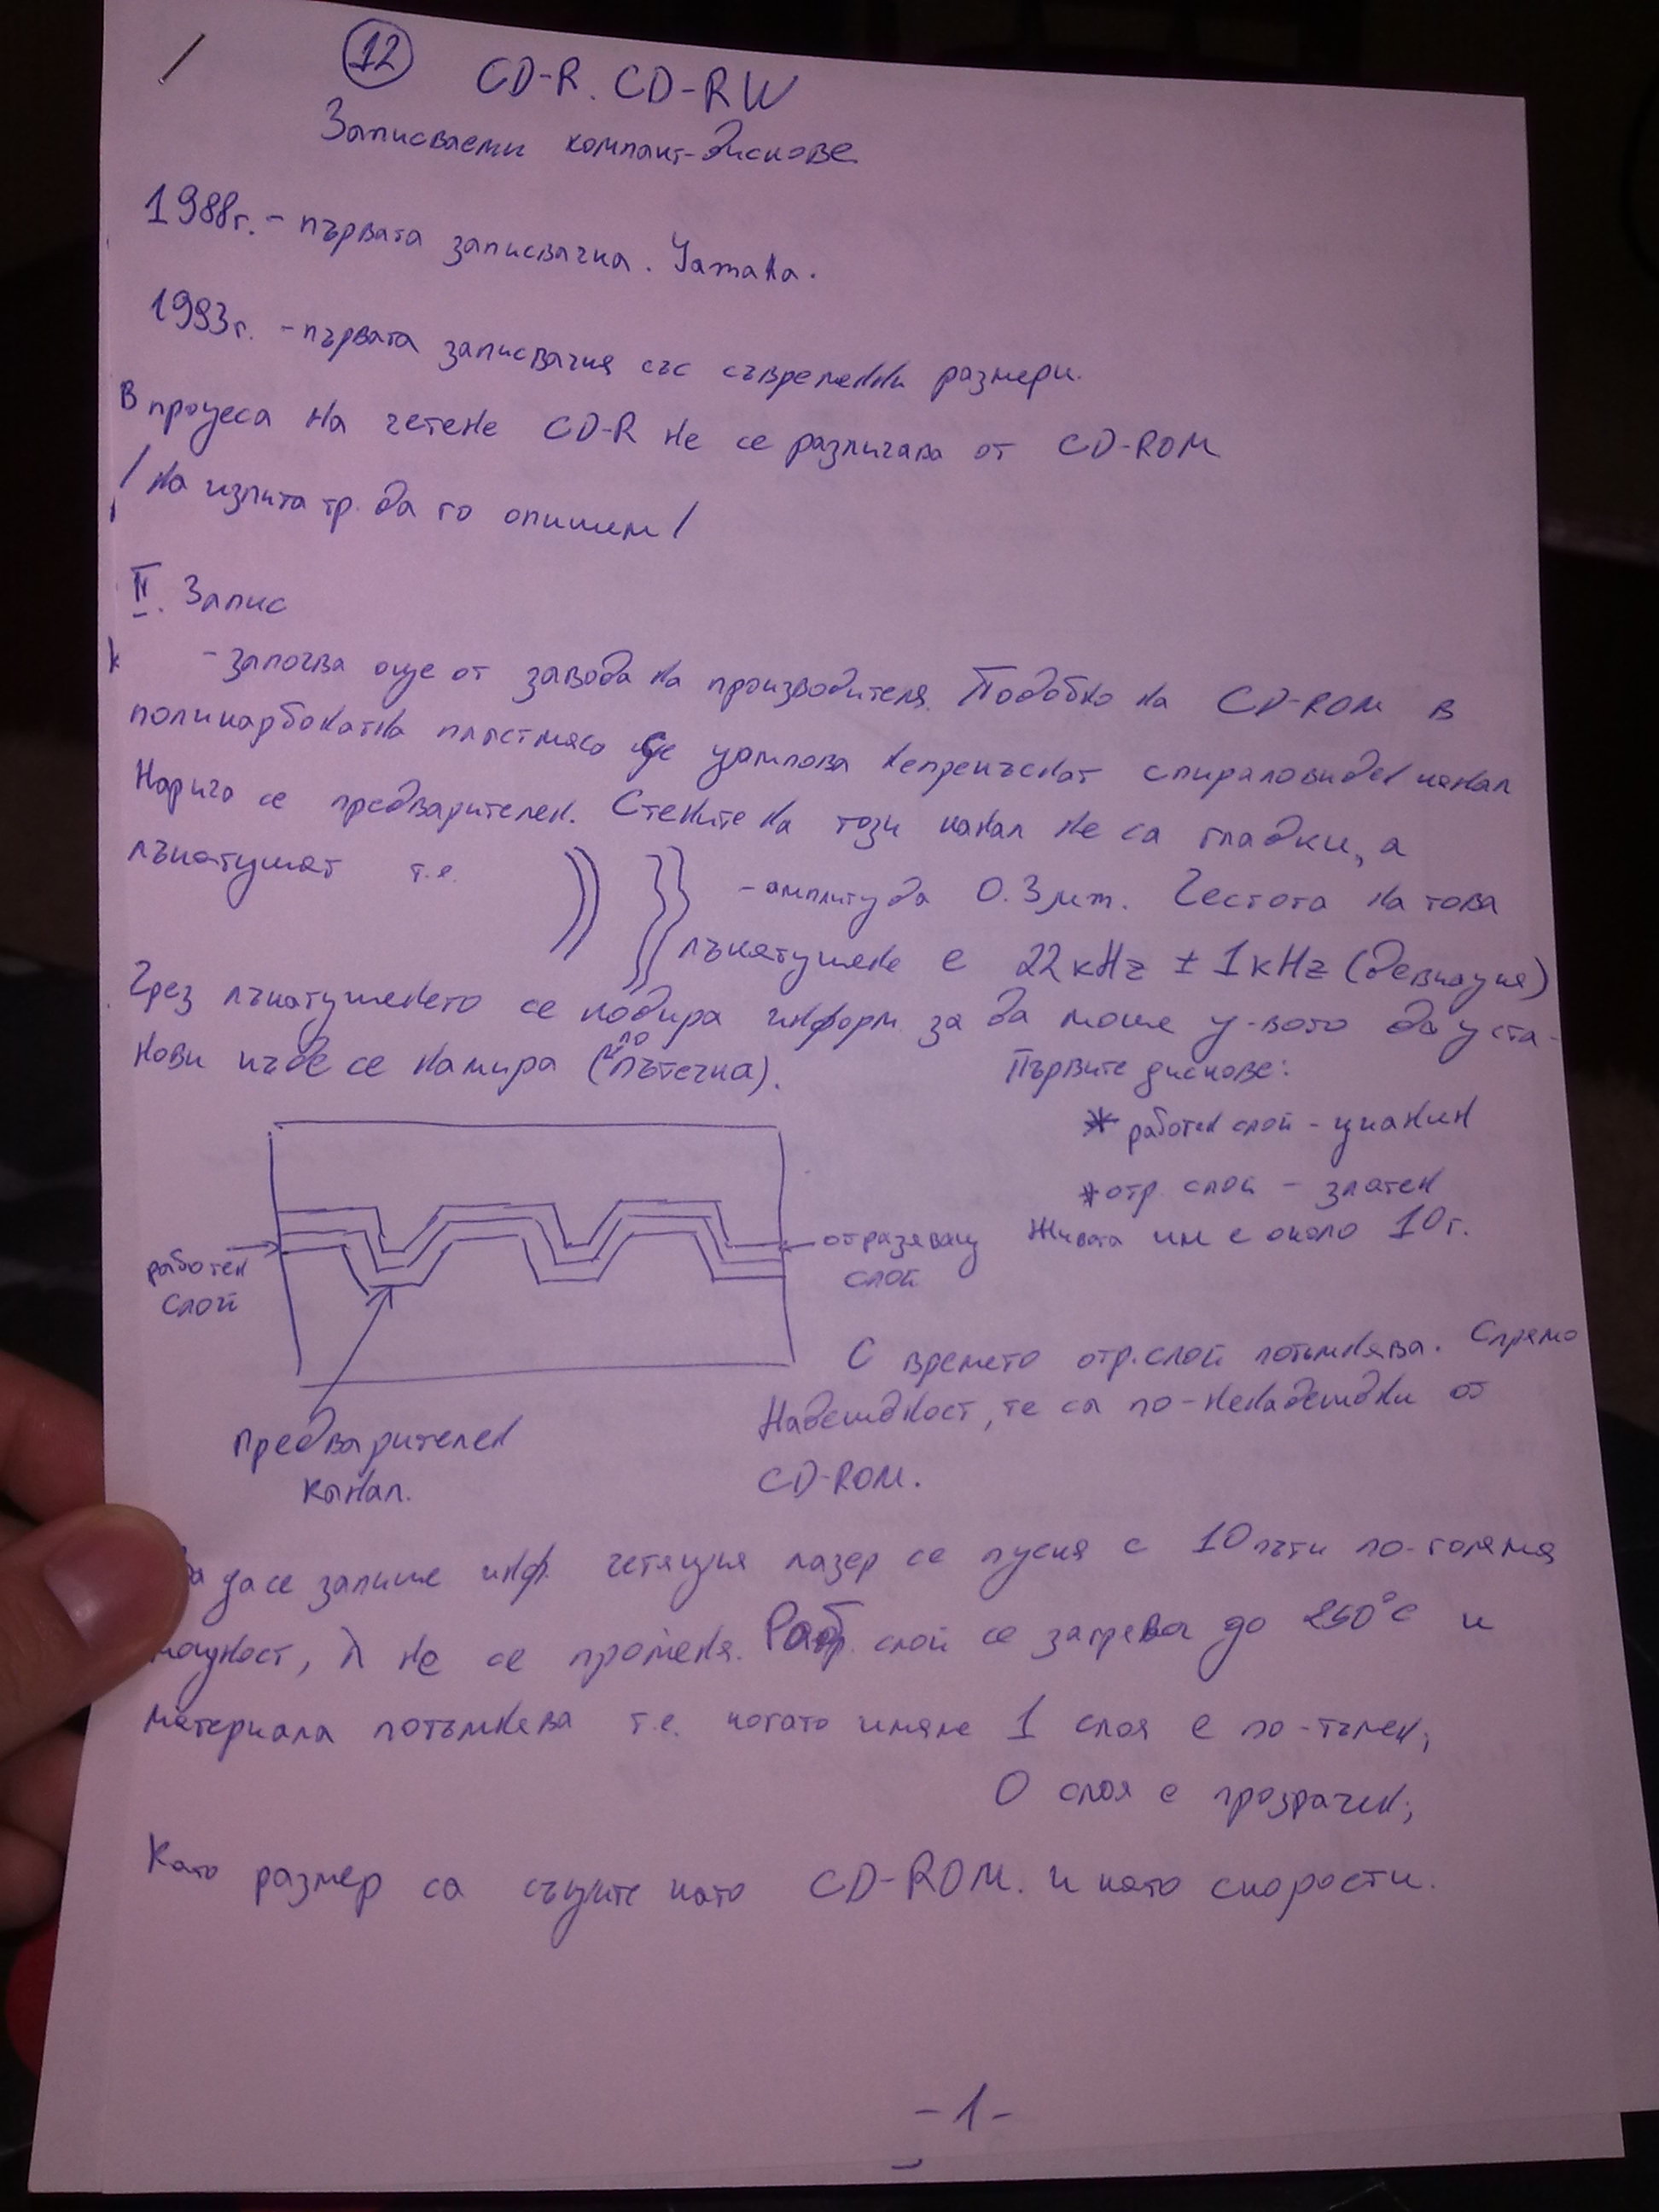 12 CD-R. CD-RW
Записваеми компакт-дискове
1988г. - първата записвачка. Yamaha.
1993г. - първата записвачка със съвременни размери.
В процеса на четене CD-R не се различава от CD-ROM
/ на изпита тр. да го опишем /
II. Запис
- започва още от завода на производителя. Подобно на CD-ROM в
поликарбонатна пластмаса се щампова непрекъснат спираловиден канал
Нарича се предварителен. Стените на този канал не са гладки, а
лъкатушат т.е. - амплитуда 0.3 μm. Честота на това
лъкатушене е 22 kHz ± 1 kHz (девиация)
Чрез лъкатушенето се кодира информ. за да може у-вото да уста-
нови къде се намира (по пътечка).
Първите дискове:
* работен слой - цианин
* отр. слой - златен
Живота им е около 10г.
работен
слой
отразяващ
слой
Предварителен
канал.
С времето отр. слой потъмнява. Спрямо
Надеждност, те са по-ненадеждни от
CD-ROM.
да се запише инф. четящия лазер се пуска с 10 пъти по-голяма
мощност, λ не се променя. Раб. слой се загрева до 250°C и
материала потъмнява т.е. когато имаме 1 слоя е по-тъмен;
0 слоя е прозрачен;
Като размер са същите като CD-ROM. и като скорости.
-1-